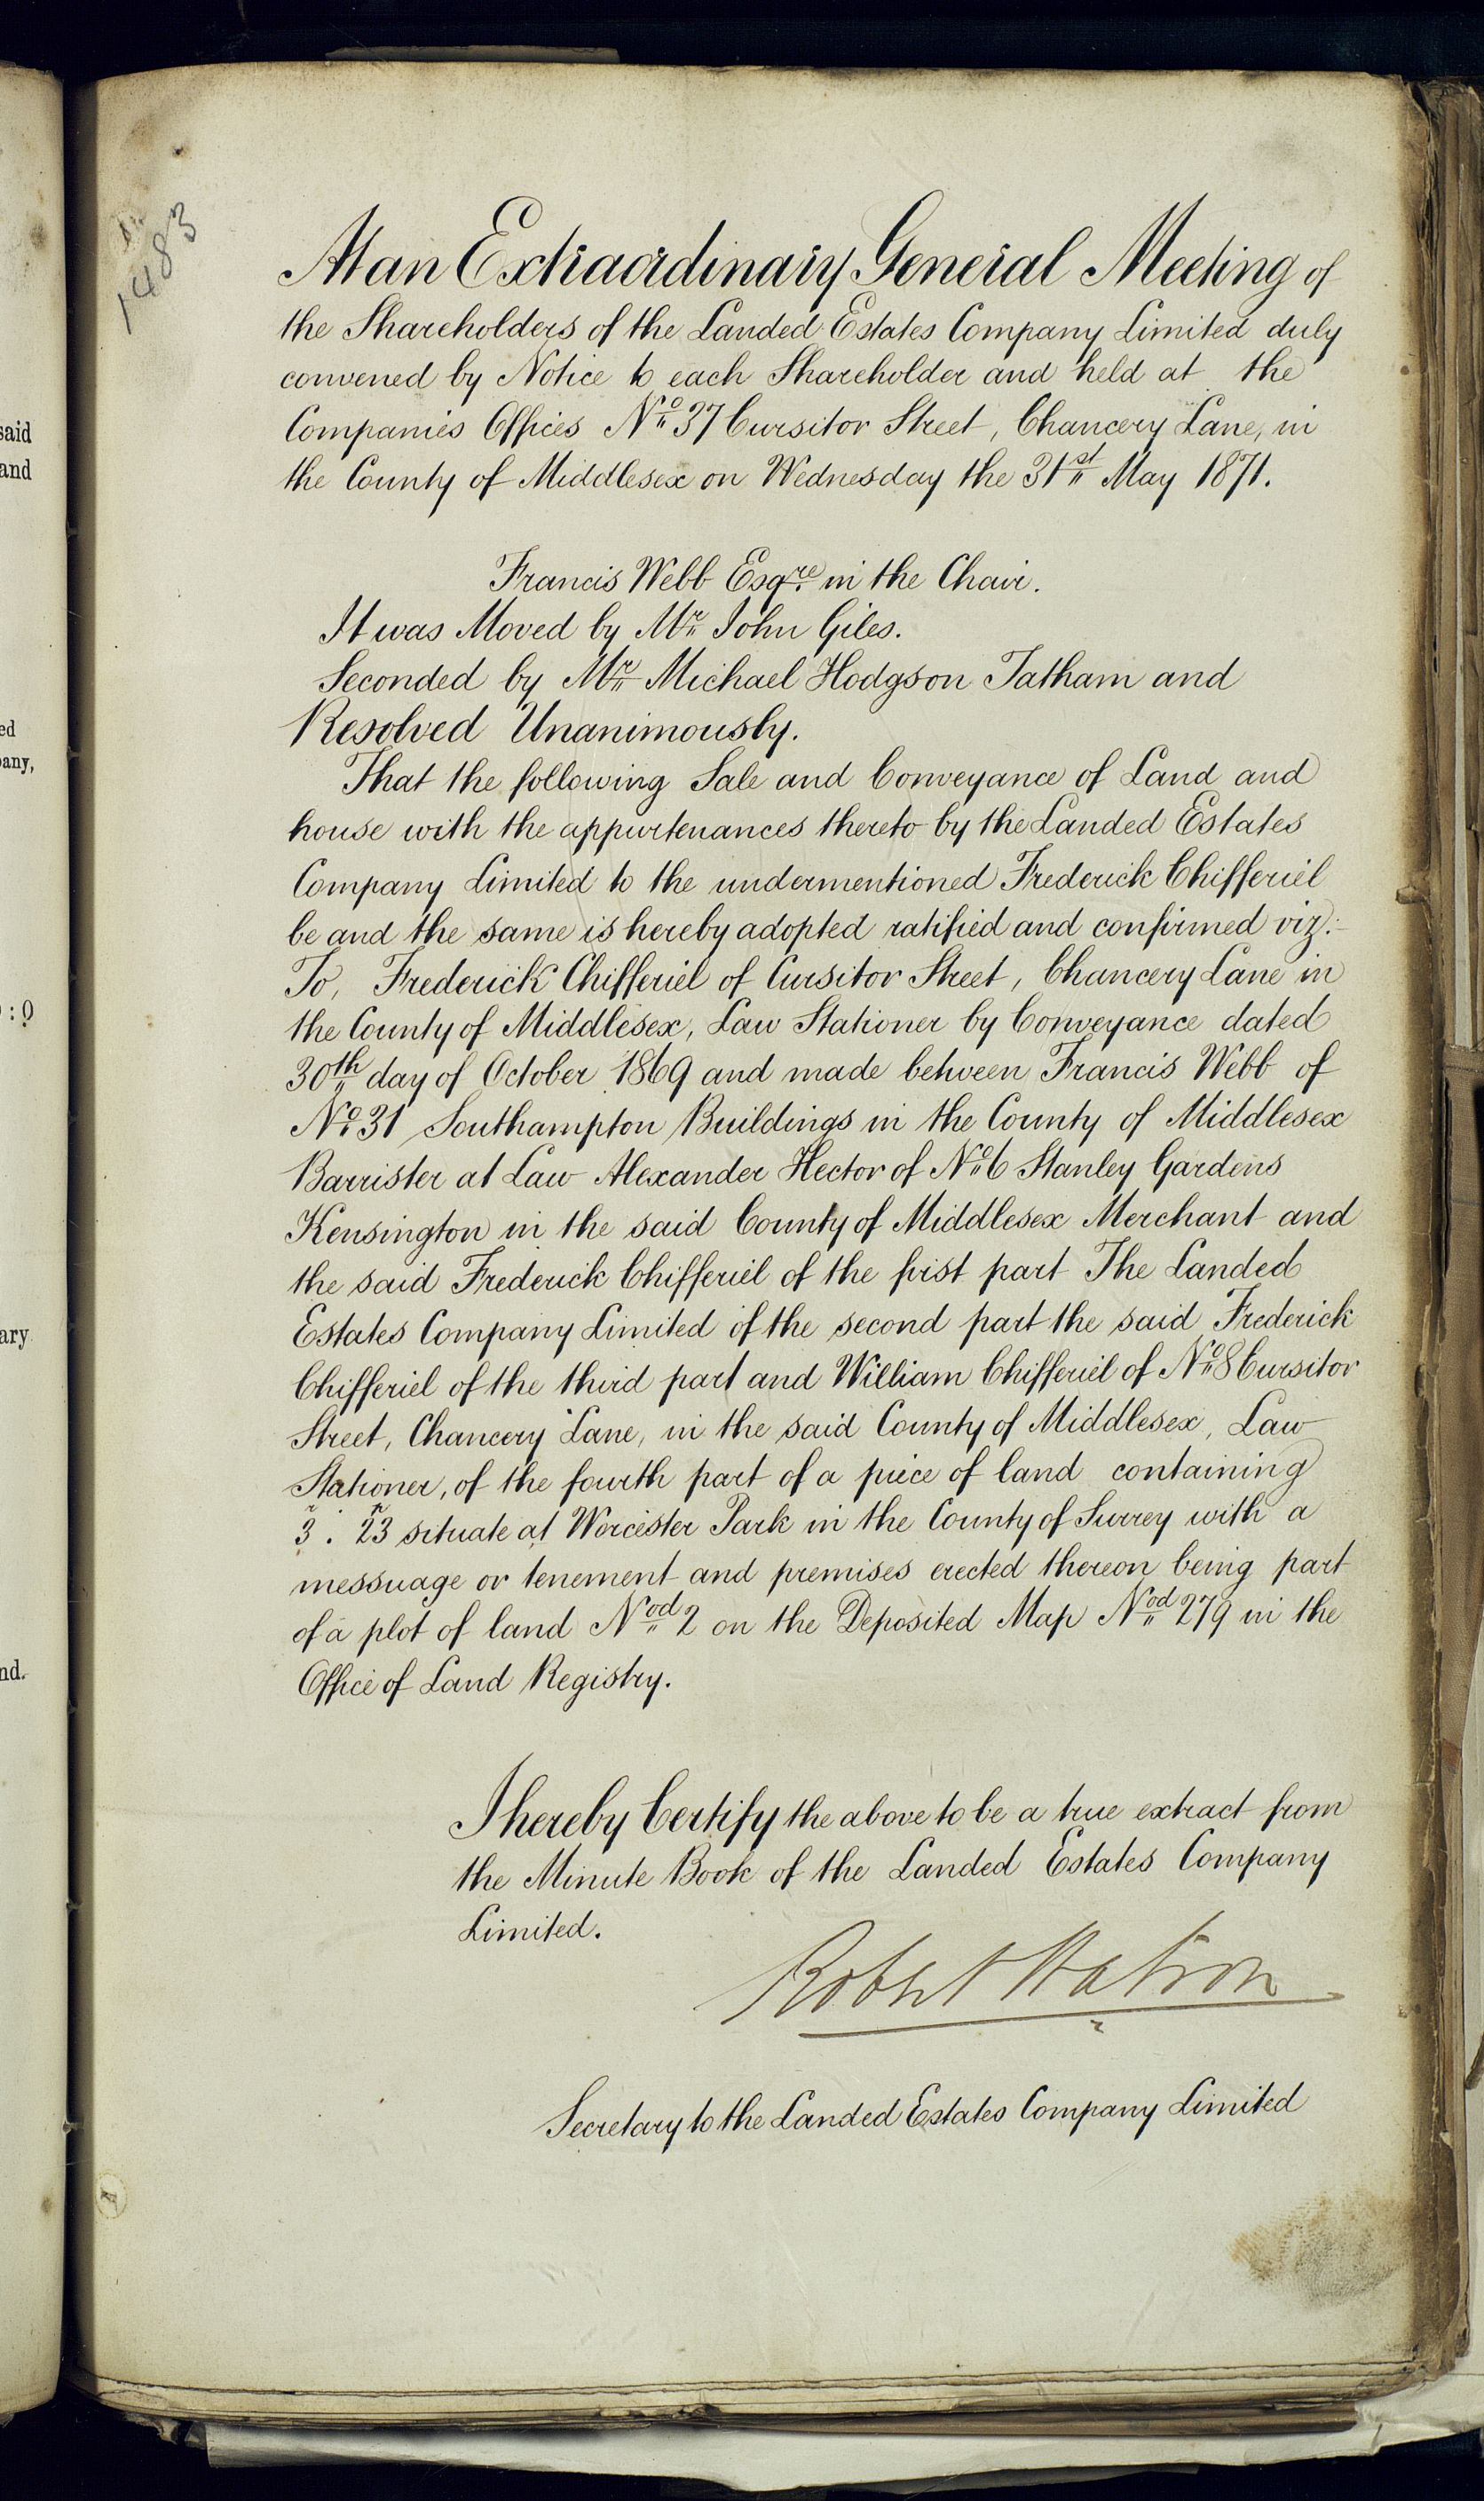 1483
At an Extraordinary General Meeting of
the Shareholders of the Landed Estates Company Limited duly
convened by Notice to each Shareholder and held at the
Companies Offices No. 37 Cursitor Street, Chancery Lane, in
the County of Middlesex on Wednesday the 31st May 1871.
Francis Webb Esqre in the Chair.
It was Moved by Mr John Giles.
Seconded by Mr Michael Hodgson Tatham and
Resolved Unanimously.
That the following Sale and Conveyance of Land and
house with the appurtenances thereto by the Landed Estates
Company Limited to the undermentioned Frederick Chifferiel
be and the same is hereby adopted ratified and confirmed viz:-
To, Frederick Chifferiel of Cursitor Street, Chancery Lane in
the County of Middlesex, Law Stationer by Conveyance dated
30th day of October 1869 and made between Francis Webb of
No. 31 Southampton Buildings in the County of Middlesex
Barrister at Law Alexander Hector of No. 6 Stanley Gardens
Kensington in the said County of Middlesex Merchant and
the said Frederick Chifferiel of the first part The Landed
Estates Company Limited of the second part the said Frederick
Chifferiel of the third part and William Chifferiel of No. 8 Cursitor
Street, Chancery Lane, in the said County of Middlesex, Law
Stationer, of the fourth part of a piece of land containing
3r. 23p situate at Worcester Park in the County of Surrey with a
messuage or tenement and premises erected thereon being part
of a plot of land Nod 2 on the Deposited Map Nod 279 in the
Office of Land Registry.
I hereby Certify the above to be a true extract from
the Minute Book of the Landed Estates Company
Limited.
Robert
Secretary to the Landed Estates Company Limited
said
and
ed
any,
: 0
ary
nd.